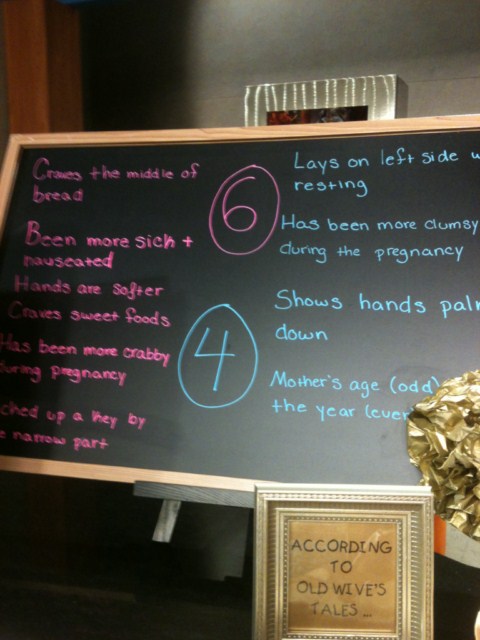 Craves the middle of
bread
Been more sick +
nauseated
Hands are softer
Craves sweet foods
Has been more crabby
during pregnancy
up a key by
narrow part
6
4
Lays on left side
resting
Has been more clumsy
during the pregnancy
Shows hands
down
Mother's age (odd)
the year
ACCORDING
TO
OLD WIVE'S
TALES...